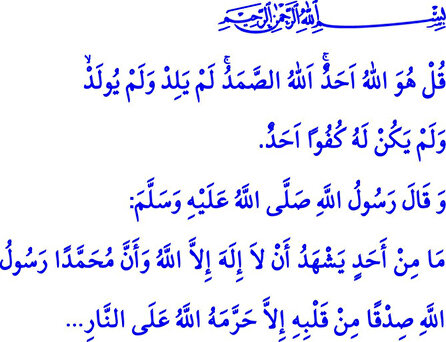 بِسْمِ اللهِ الرَّحْمٰنِ الرَّحِيمِ
قُلْ هُوَ اللهُ اَحَدٌۚ اَللهُ الصَّمَدُۚ لَمْ يَلِدْ وَلَمْ يُولَدْۙ
وَلَمْ يَكُنْ لَهُ كُفُوًا اَحَدٌ.
وَ قَالَ رَسُولُ اللَّهِ صَلَّى اللَّهُ عَلَيْهِ وَسَلَّمَ:
مَا مِنْ أَحَدٍ يَشْهَدُ أَنْ لاَ إِلَهَ إِلاَّ اللَّهُ وَأَنَّ مُحَمَّدًا رَسُولُ
اللَّهِ صِدْقًا مِنْ قَلْبِهِ إِلاَّ حَرَّمَهُ اللَّهُ عَلَى النَّارِ...